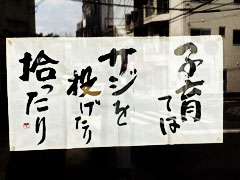 子育ては
サジを
投げたり
拾ったり